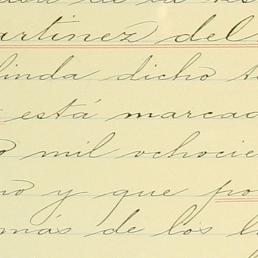 artinez del
linda dicho te
está marcad
o mil ochocie
no y que po
más de los l